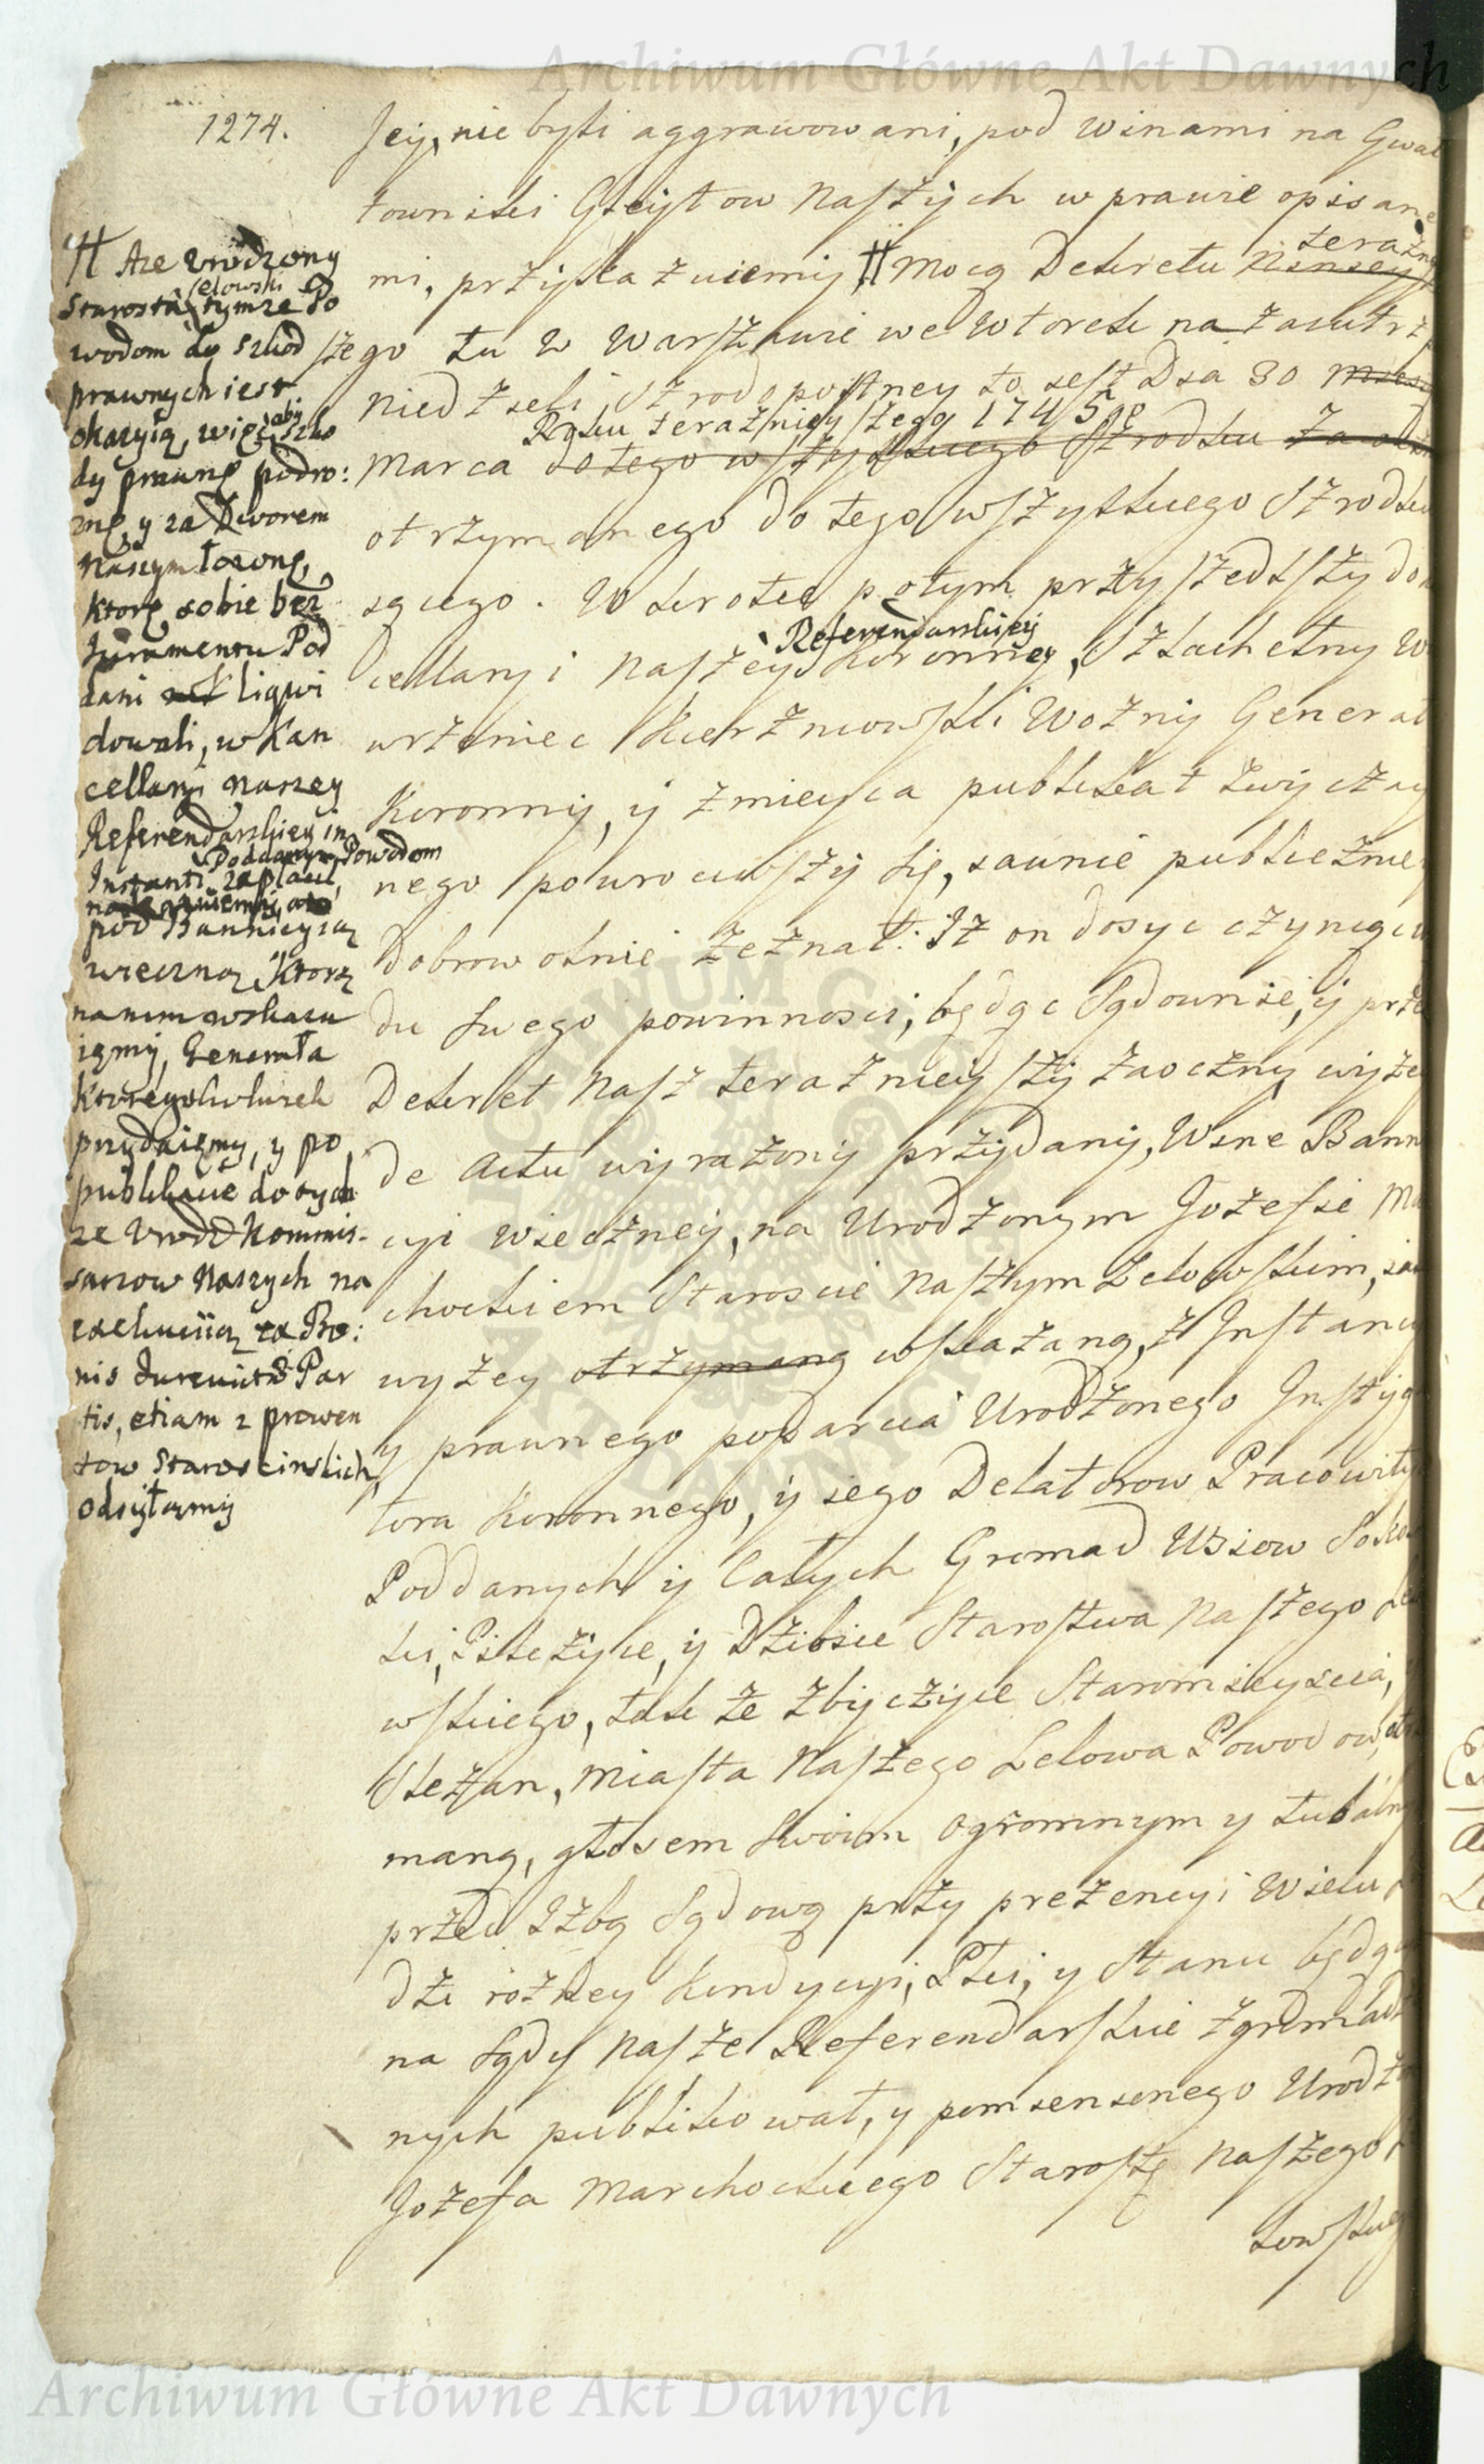 Archiwum Główne Akt Dawnych
1274.
Jey, nie byli aggrawowani, pod winami na Gwał
towniki Gleytow Naszych w prawie opisane
mi, przykazuiemy # Mocą Dekretu
szego tu w Warszawie we Wtorek na zaiutrz
niedzieli Szrodopostney to iest Dia 30
Roku teraznieyszego 1745go
Marca do tego wszystkiego Szrodku
otrzymanego do tego wszystkiego Szrodku
iącego. Wkrotce potym przyszedszy do
Referendarskiey
cellaryi Naszey Koronney, Szlachetny W
wrzeniec Kierznowski Wozny Generał
Koronny, y z mieysca publikat zwyczay
nego powrociwszy się, iawnie publicznie
Dobrowolnie zeznał: Iż on dosyc czyniąc
du swego powinnosci, będąc Sądownie, y prze
Dekret Nasz teraznieyszy zaoczny wyże
de Actu wyrażony przydany, Winę Bann
cyi wieczney, na Urodzonym Jozefie Ma
chockiem Staroscie Naszym Lelowskim, iak
wyżey otrzymaną wskazaną, z Instancy
y prawnego poparcia Urodzonego Instyga
tora Koronnego, y iego Delatorow Pracowity
Poddanych y całych Gromad Wsiow Soko
ki, Pilczyce, y Dzibice Starostwa Naszego Le
wskiego, także Zbyczyce Staromieyscia,
Slezan, Miasta Naszego Lelowa Powodow, otrz
maną, głosem swoim ogromnym y tubalny
przed Izbą Sądową przy prezencyi Wielu
dzi rożney kondycyi, Płci, y Stanu będą
na Sądy Nasze Referendarskie zgromadz
nych publikował, y pomienionego Urodzo
Jozefa Marchockiego Starostę Naszego
lowskieg
# Aze Urodzony
Starosta Lelowski tymze Po
wodom do szkod
prawnych iest
okazyią, więc aby szko
dy prawne podro:
zne, y za Dworem
Naszym łożone,
ktore sobie bez
Juramentu Pod
dani liqwi
dowali, w Kan
cellaryi Naszey
Referendarskiey in
Instanti Poddanym Powodom zapłacił,
pod Bannicyią
wieczną, ktorą
na nim wskazu
iemy, Generała
ktoregokolwiek
przydaiemy, y po
publikacie do tych
ze Urodz Kommis-
sarzow Naszych na
exekucyią ex Bo:
nis Par
tis, etiam z prowen
tow Staroscinskich,
odsyłamy
Archiwum Główne Akt Dawnych